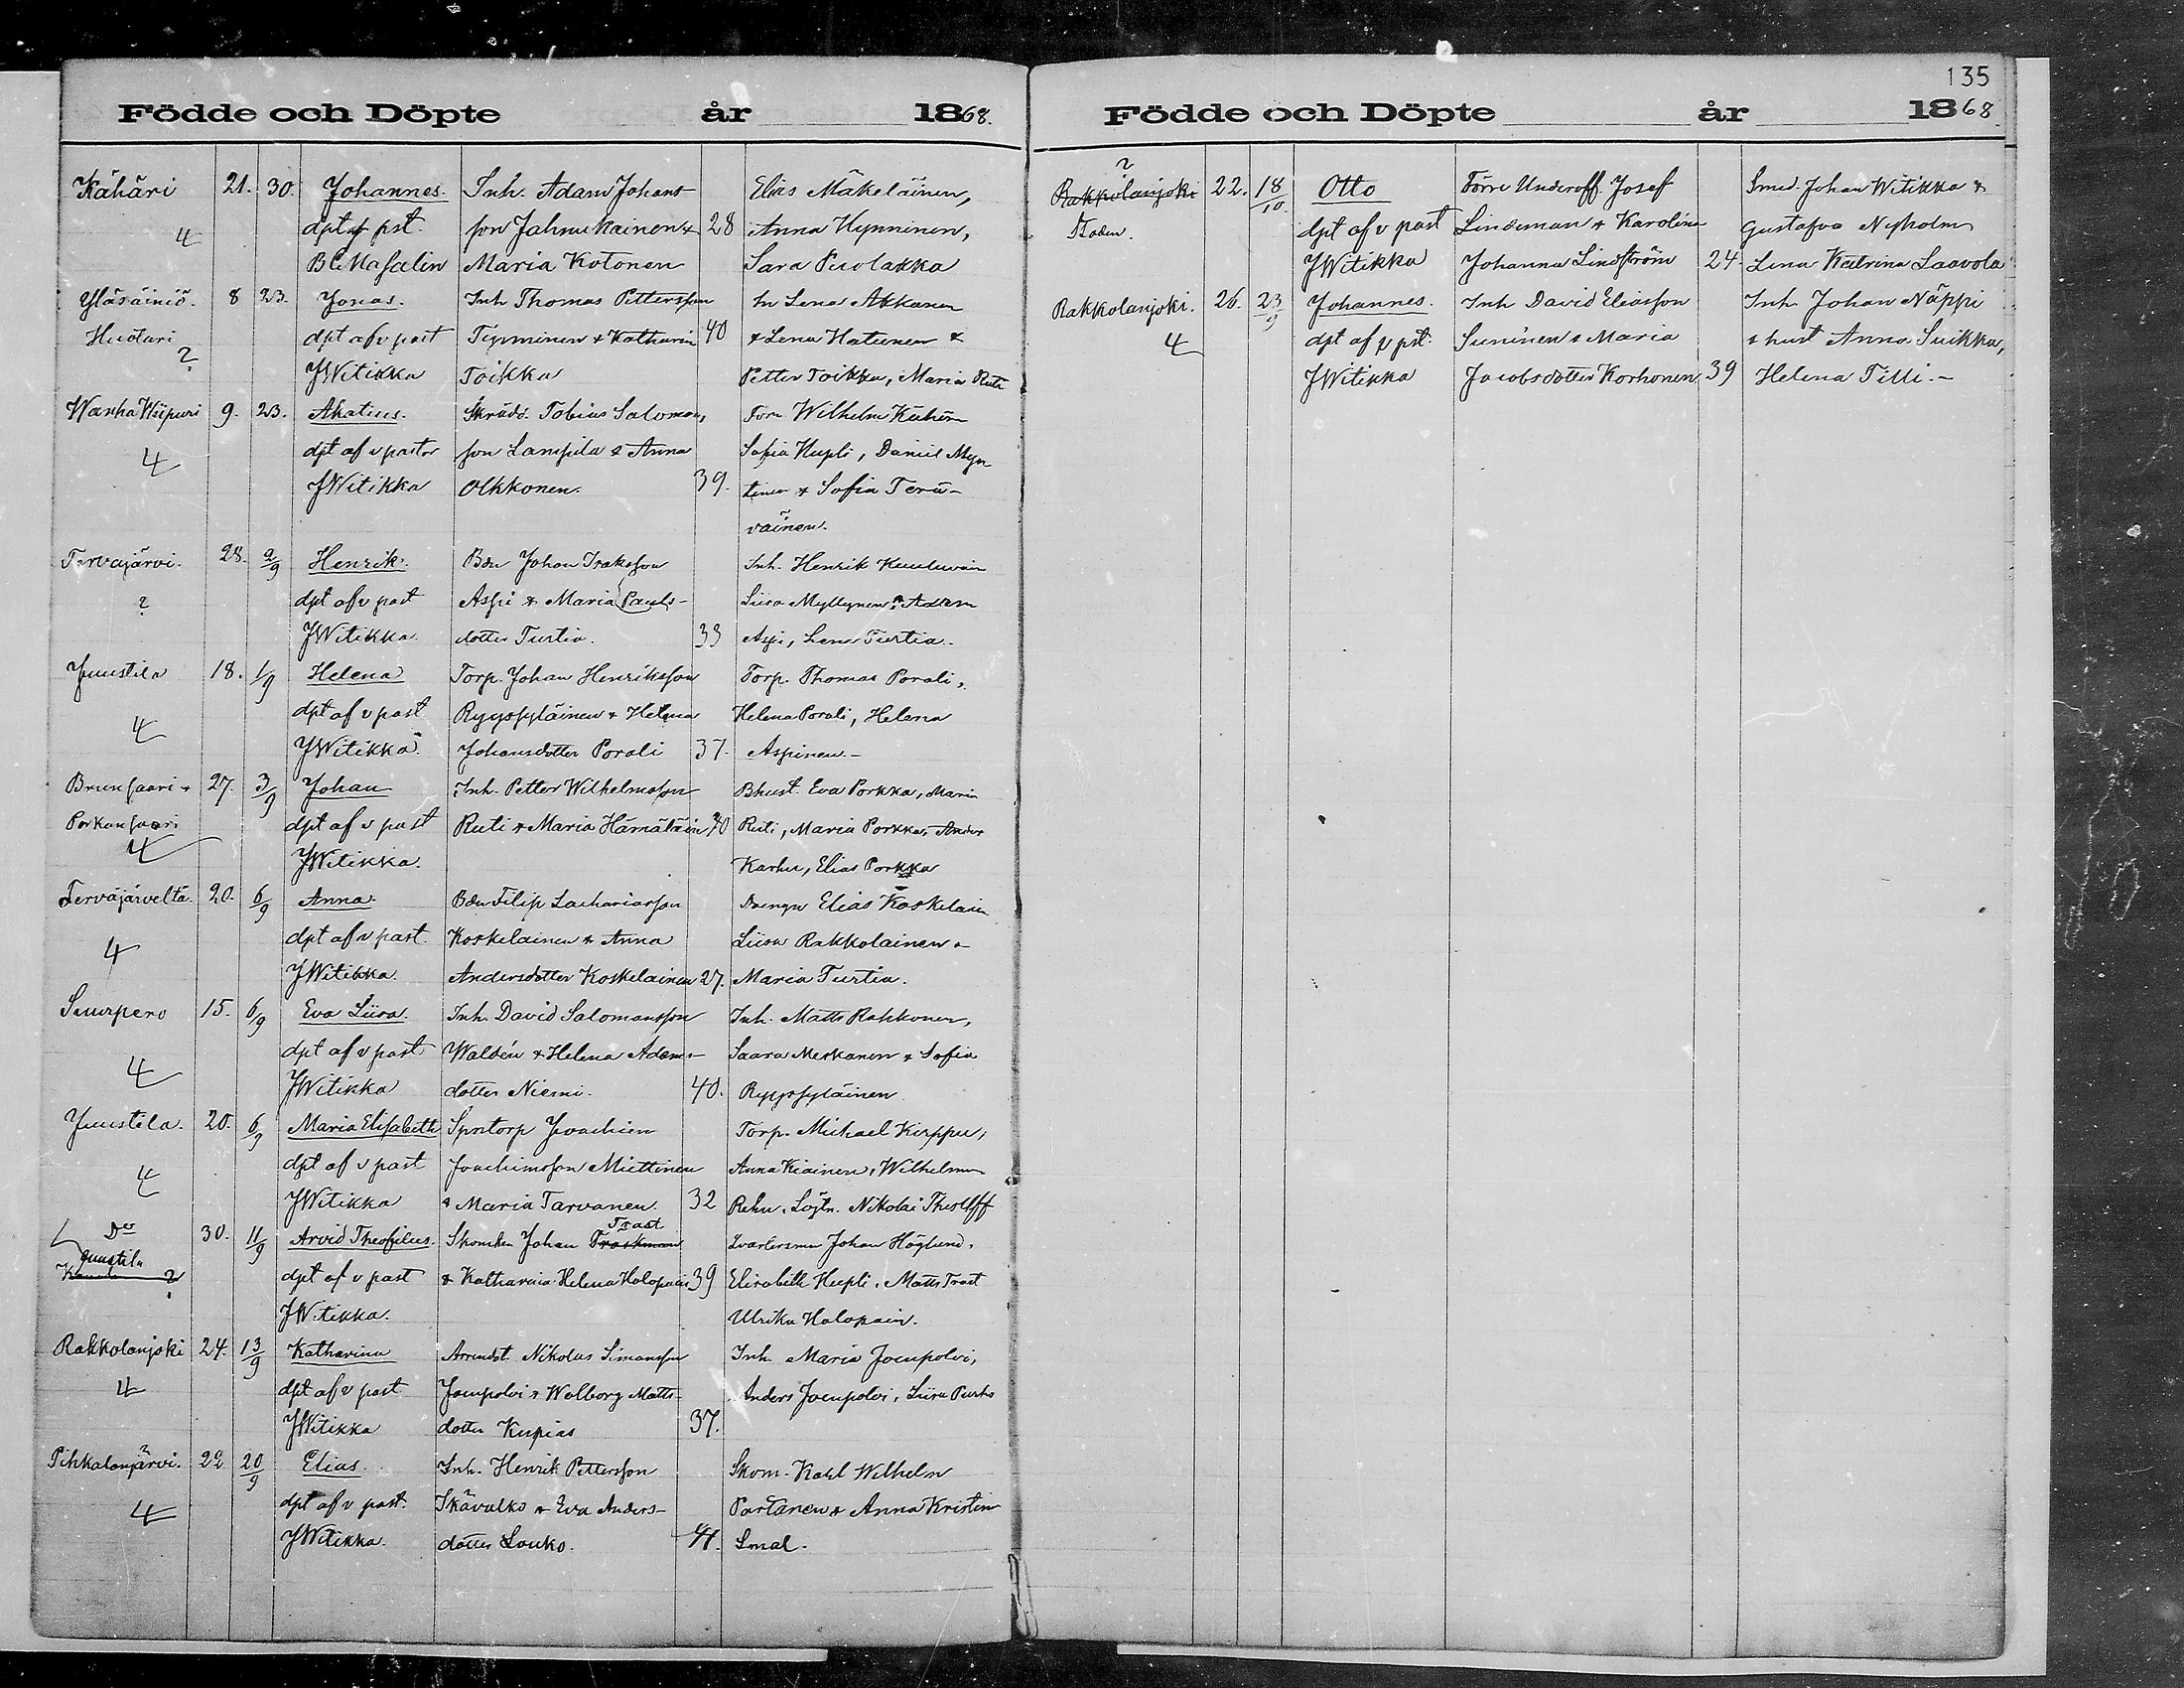 135
Födde och Döpte år 1868.
Kähäri 21. 30. Johannes. Inh. Adam Johans- Elias Mäkeläinen,
4 dpt af pst. son Jahnukainen & 28 Anna Hynninen,
B C Masalin Maria Kotonen Sara Puolakka
Yläsäiniö. 8 23. Jonas. Inh Thomas Pettersson Lena Akkanen
Huotari dpt af v past Tynninen & Katharin 40 & Lena Hatunen &
? JWitikka Toikka Petter Toikka, Maria Ruti
Wanha Wiipuri 9. 23. Akatius. Skrädd. Tobias Salomons Wilhelm
4 dpt af v pastor son Lampila & Anna Sofia Hupli, Daniel Myn
JWitikka Olkkonen. 39. tinen & Sofia Terä-
väinen.
Tervajärvi. 28. 2/9 Henrik. Bdn Johan Isaksson Inh. Henrik
? dpt af v past Aspi & Maria Pauls- Liisa Myllynen, Adam
JWitikka. dotter Turtia. 33 Aspi, Lena Turtia.
Juustila 18. 1/9 Helena Torp. Johan Henriksson Torp. Thomas Porali,
4 dpt af v past Ryypsyläinen & Helena Helena Porali, Helena
JWitikka. Johansdotter Porali 37. Aspinen.-
Brunsaari 27. 3/9 Johan Inh. Petter Wilhelmsson Bhust. Eva Porkka, Maria
Porkansaari dpt af v past Ruti & Maria Hämäläin 40 Ruti, Maria Porkka, Anders
4 JWitikka. Karhu, Elias Porkka
Tervajärveltä. 20. 6/9 Anna. Bdn Filip Zachariasson Drengn Elias Koskelain
4 dpt af v past. Koskelainen & Anna Liisa Rakkolainen &
JWitikka. Andersdotter Koskelainen 27. Maria Turtia.
Suurpero 15. 6/9 Eva Liisa. Inh. David Salomonsson Inh. Matts Rahkonen,
4 dpt af v past Waldén & Helena Adams- Saara Merkanen & Sofia
JWitikka dotter Niemi. 40. Ryypsyläinen
Juustila. 20. 6/9 Maria Elisabeth Spntorp Joachim Torp. Michael Kirppu,
4 dpt af v past Joachimsson Miettinen Anna Kiainen, Wilhelm
JWitikka & Maria Tarvanen. 32 Rehn, Nikolai Thesleff
Do 30. 11/9 Arvid Theofilus. Skomkn Johan Traskman Trast Johan Höglund,
Juustila ? dpt af v past & Katharina Helena Holopain 39 Elisabeth Hupli, Matts Trast
JWitikka. Ulrika Holopain.
Rakkolanjoki 24. 13/9 Katharina Arrendat. Nikolas Simonsson Inh. Maria Joenpolvi,
4 dpt af v past Joenpolvi & Walborg Matts- Anders Joenpolvi, Liisa Purho
JWitikka dotter Kupias 37.
Pihkalanjärvi. ? 22 20/9 Elias. Inh. Henrik Pettersson Skom. Karl Wilhelm
4 dpt af v past. Skävalko & Eva Anders- Partanen & Anna Kristin
JWitikka. dotter Louko. 41. Smal.
Födde och Döpte år 1868
?
Rakkolanjoki 22. 18/10. Otto Förre Underoff. Josef Smed. Johan Witikka &
Staden. dpt af v past Lindeman & Karolina Gustafva Nyholm
JWitikka Johanna Lindström 24. Lena Katrina Laavola
Rakkolanjoki. 26. 23/9 Johannes. Inh David Eliasson Inh Johan Näppi
4 dpt af v pst. Suninen & Maria & hust Anna Suikka,
JWitikka Jacobsdotter Korhonen 39 Helena Tilli.-